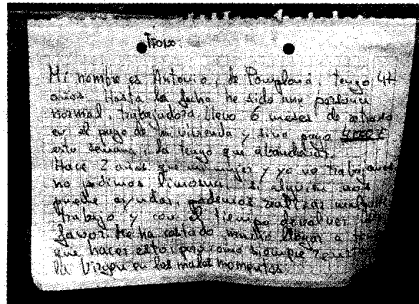 Mi nombre es Antonio, de Pamplona, tengo 47
años. Hasta la fecha he sido una persona
normal, trabajadora. Llevo 6 meses de retraso
en el pago de mi vivienda y si no pago
esta semana la tengo que abandonar.
Hace 2 años que mi mujer y yo no trabajamos
no pedimos limosna si alguien nos
puede ayudar, podemos realizar cualquier
trabajo y con el tiempo devolver el
favor. Me ha costado mucho llegar a
que hacer esto, pero como siempre
la Virgen en los malos momentos